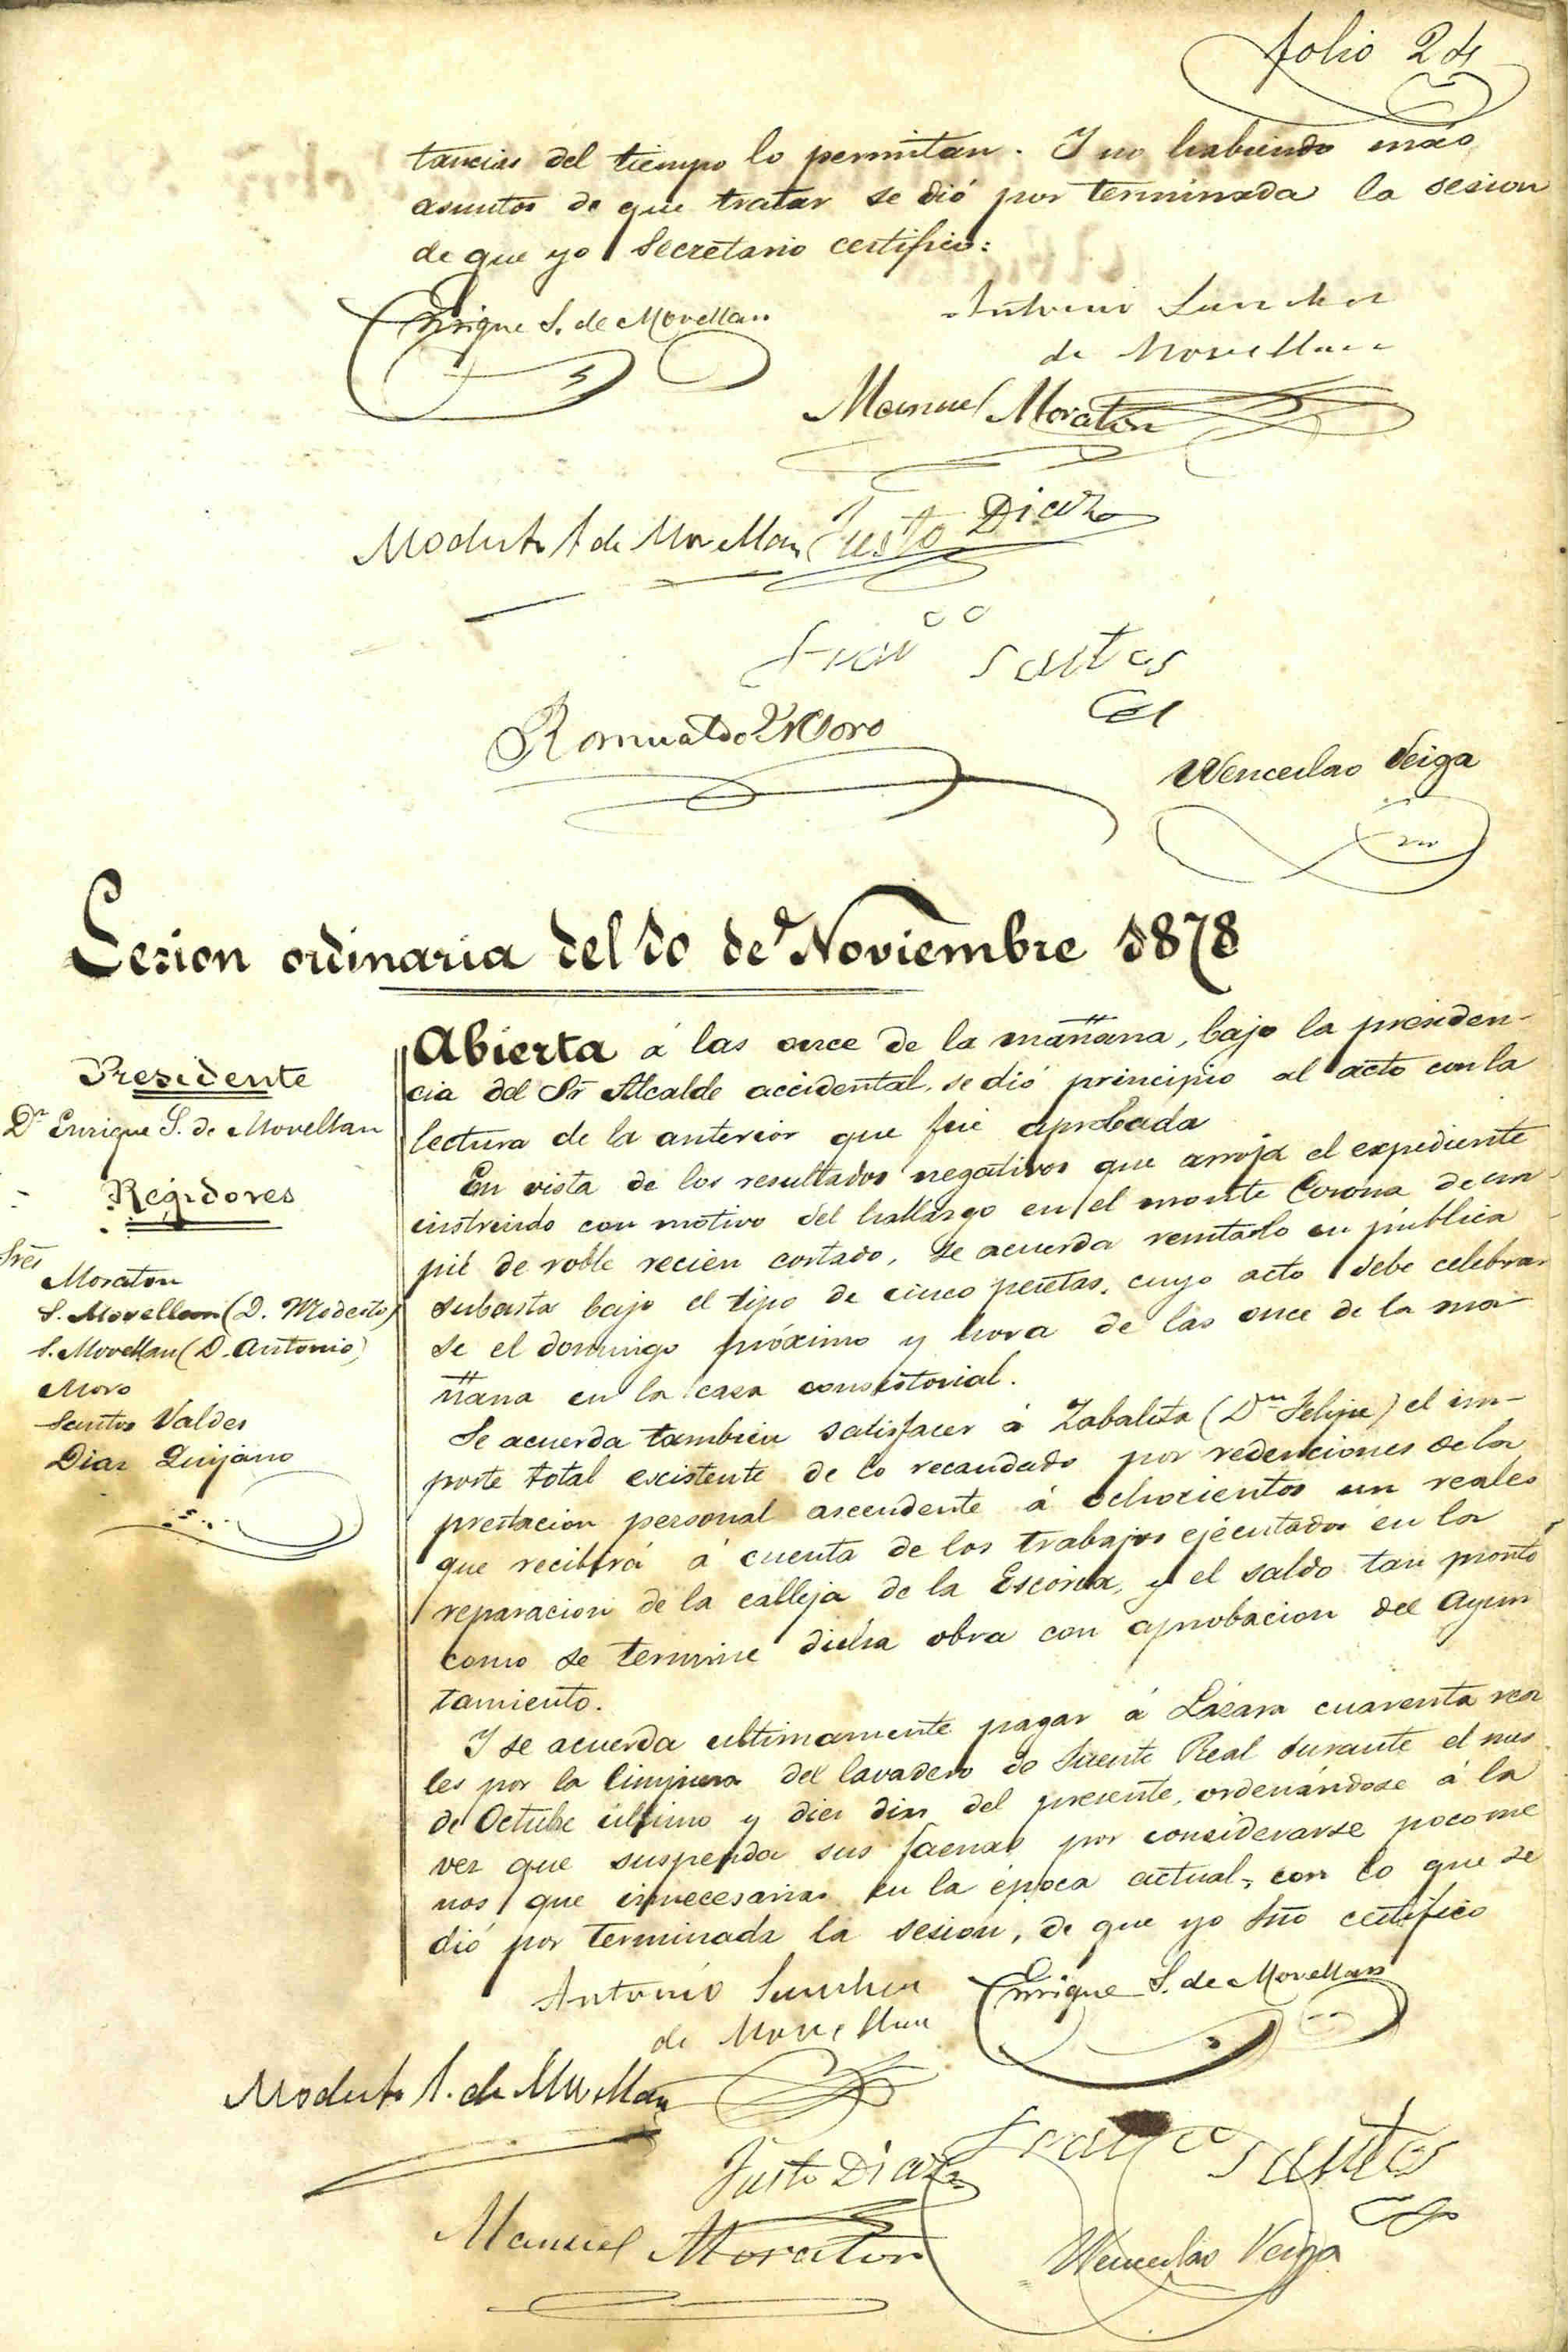 folio 24
tancias del tiempo lo permitan. Y no habiendo mas
asuntos de que tratar se dió por terminada la sesion
de que yo Secretario certifico:
Enrique S. de Movellan
Antonio Sanchez
de Movellan
Manuel Moraton
Modesto S. de Movellan
Justo Diaz
Franco Santos
Romualdo Moro
Wenceslao Veiga
Sesion ordinaria del 10 de Noviembre 1878
Presidente
Dn Enrique S. de Movellan
Regidores
Sres
Moraton
S. Movellan (D. Modesto)
S. Movellan (D. Antonio)
Moro
Santos Valdes
Diaz Quijano
Abierta á las once de la mañana, bajo la presiden-
cia del Sr Alcalde accidental, se dió principio al acto con la
lectura de la anterior que fué aprobada
En vista de los resultados negativos que arroja el expediente
instruido con motivo del hallazgo en el monte Corona de un
pié de roble recien cortado, se acuerda rematarlo en pública
subasta bajo el tipo de cinco pesetas, cuyo acto debe celebrar
se el domingo próximo y hora de las once de la ma-
ñana en la casa consistorial.
Se acuerda tambien satisfacer á Zabaleta (Dn Felipe) el im-
porte total existente de lo recaudado por redenciones de la
prestacion personal ascendente á ochocientos un reales
que recibirá á cuenta de los trabajos ejecutados en la
reparacion de la calleja de la Escoria, y el saldo tan pronto
como se termine dicha obra con aprobacion del Ayun
tamiento.
Y se acuerda ultimamente pagar á Lázara cuarenta rea
les por la limpieza del lavadero de Fuente Real durante el mes
de Octubre último y diez dias del presente, ordenándose á la
vez que suspenda sus faenas por considerarse poco me
nos que innecesarias en la época actual, con lo que se
dió por terminada la sesion, de que yo Srio certifico
Antonio Sanchez
de Movellan
Enrique S. de Movellan
Modesto S. de Movellan
Justo Diaz
Franco Santos
Manuel Moraton
Wenceslao Veiga